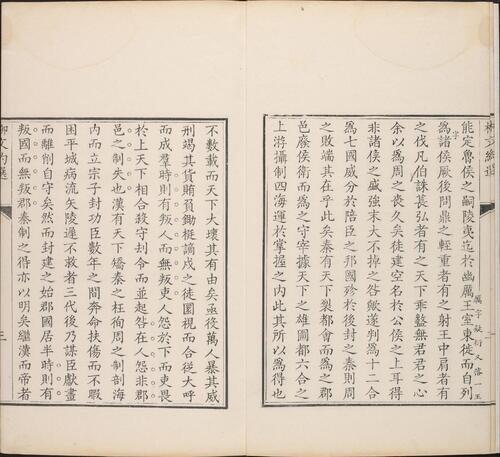 厲字疑衍又落一王
字
能定魯侯之嗣陵夷迄於幽厲王室東徙而自列
爲諸侯厥後問鼎之輕重者有之射王中肩者有
之伐凡伯誅萇弘者有之天下乖盭無君君之心
余以爲周之喪久矣徒建空名於公侯之上耳得
非諸侯之盛強末大不掉之咎歟遂判爲十二合
爲七國威分於陪臣之邦國殄於後封之秦則周
之敗端其在乎此矣秦有天下裂都會而爲之郡
邑廢侯衞而爲之守宰據天下之雄圖都六合之
上游攝制四海運於掌握之內此其所以爲得也
不數載而天下大壞其有由矣亟役萬人暴其威
刑竭其貨賄負鋤梃謫戍之徒圜視而合從大呼
而成羣時則有叛人而無叛吏人怨於下而吏畏
於上天下相合殺守刦令而並起咎在人怨非郡
邑之制失也漢有天下矯秦之枉徇周之制剖海
內而立宗子封功臣數年之間奔命扶傷而不暇
困平城病流矢陵遲不救者三代後乃謀臣獻畫
而離削自守矣然而封建之始郡國居半時則有
叛國而無叛郡秦制之得亦以明矣繼漢而帝者
柳文約選
三